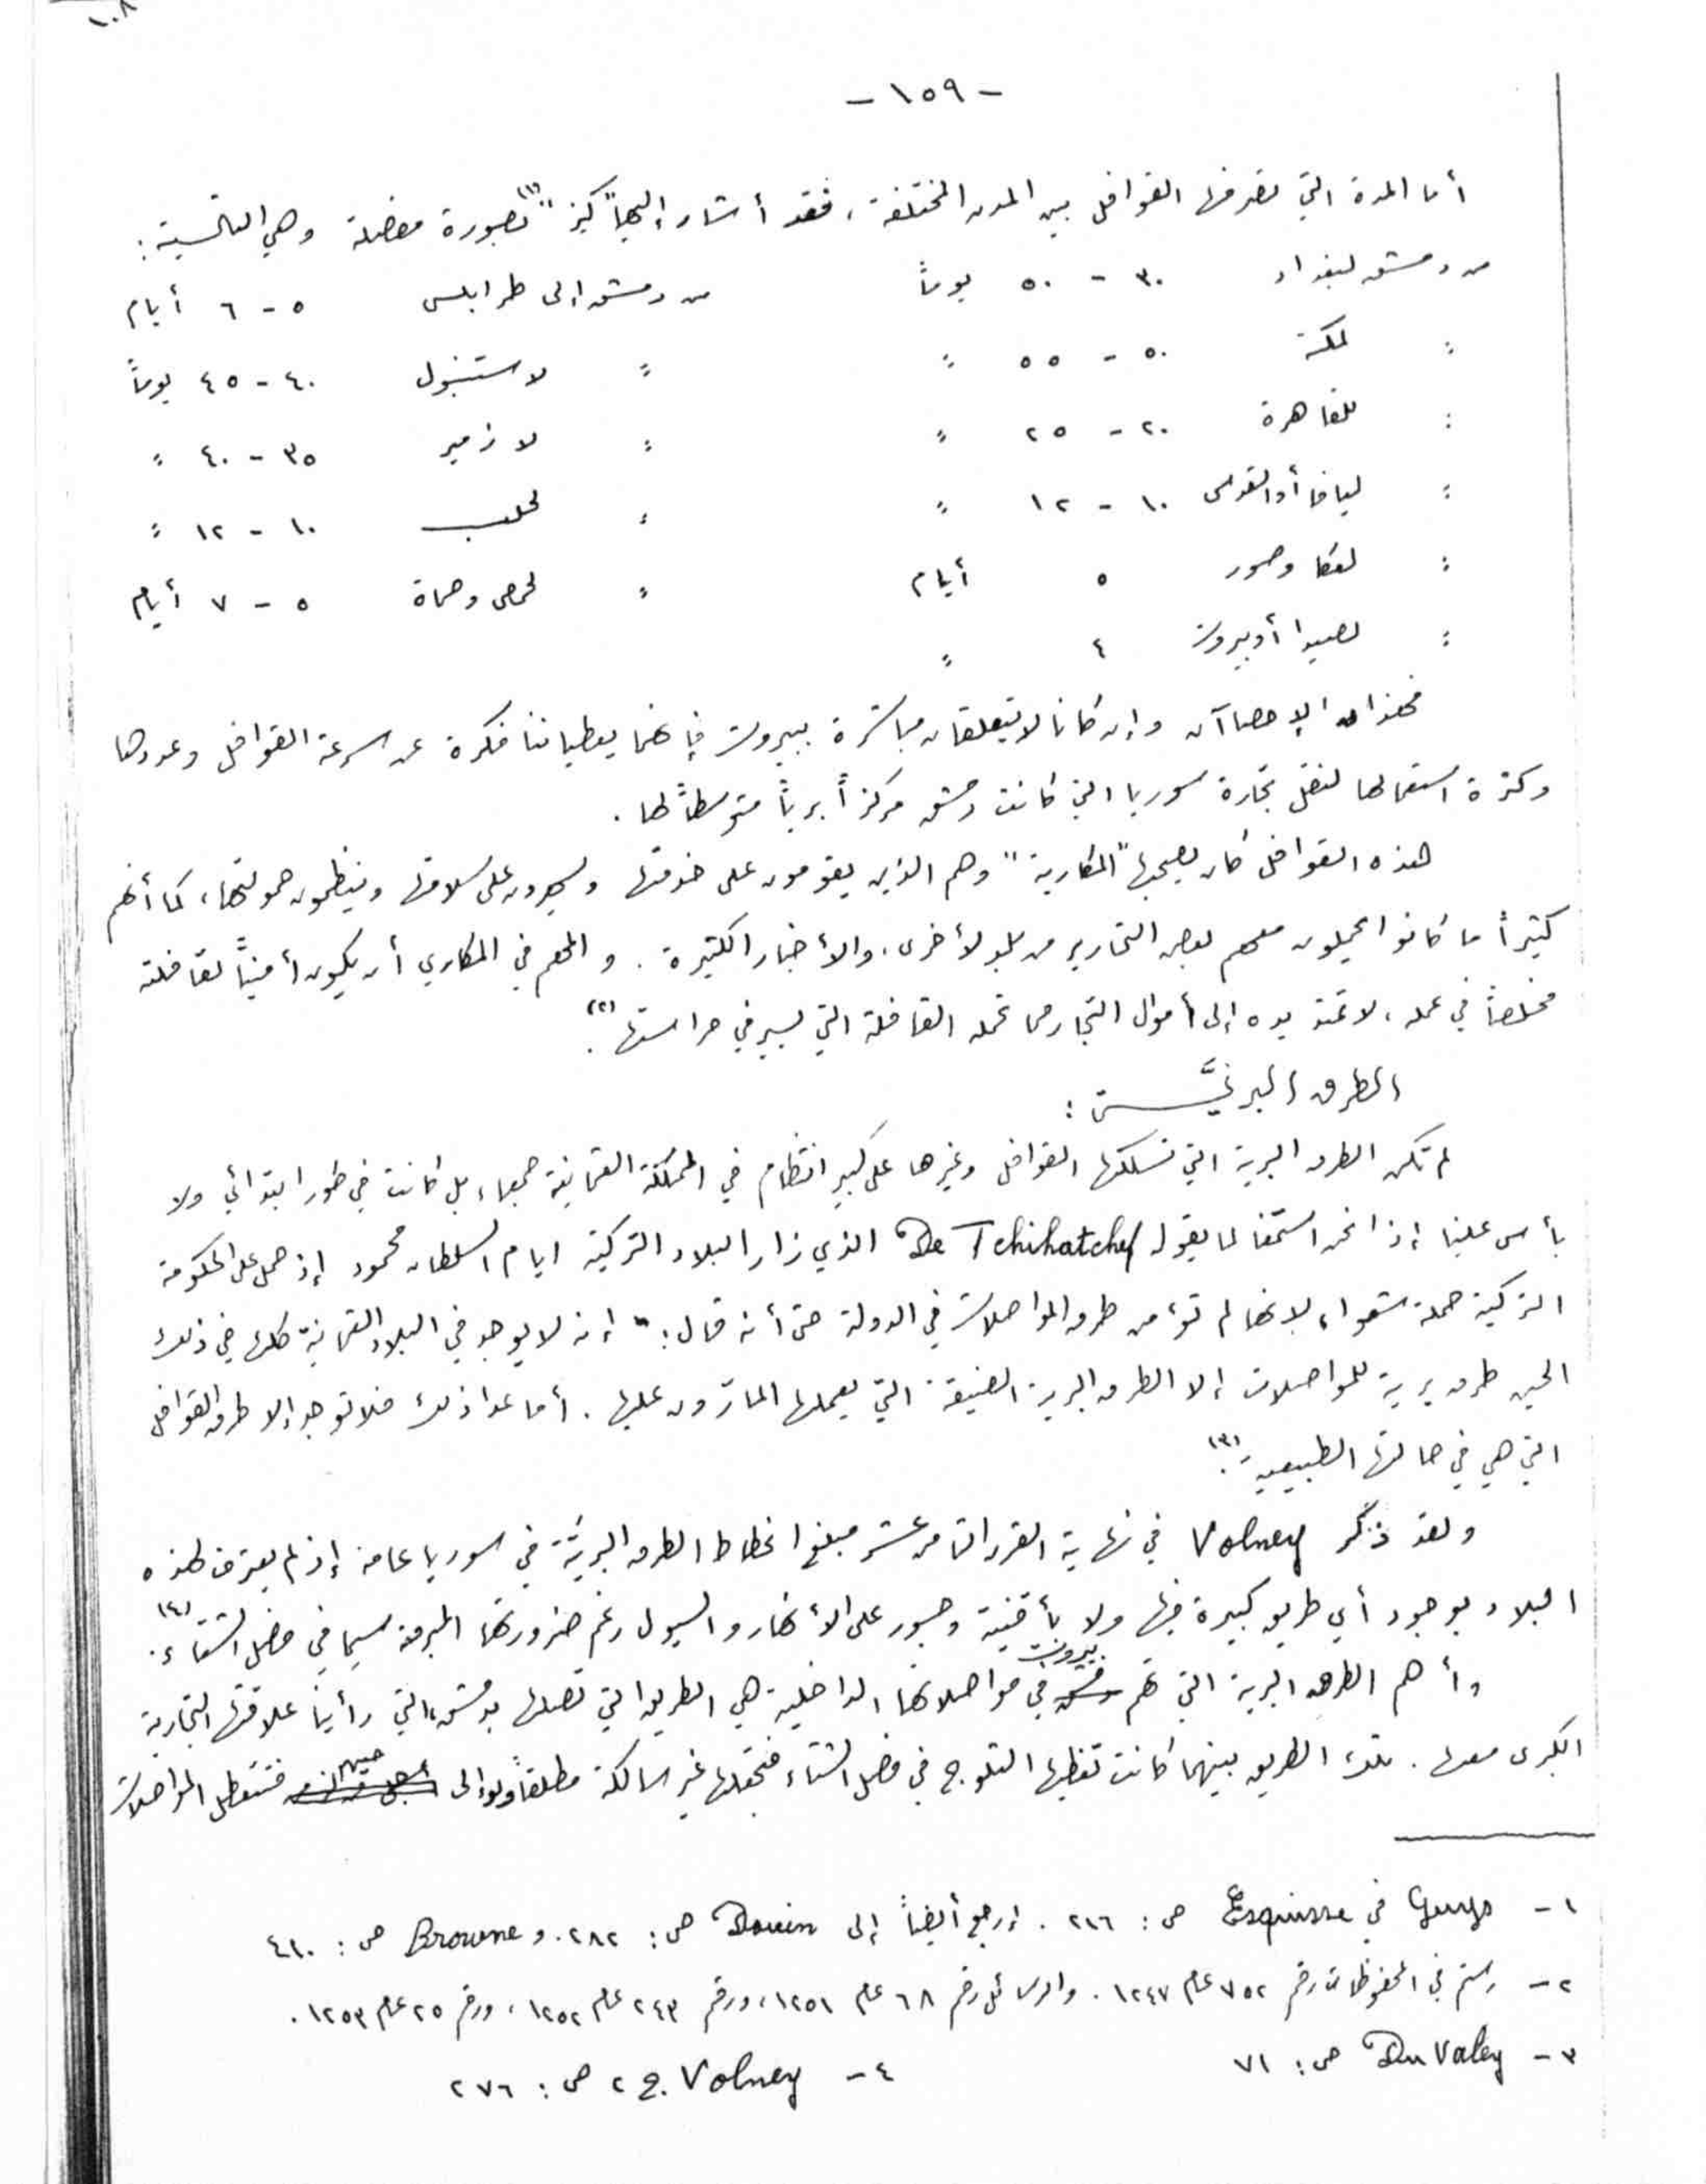 ١٠٨
- ١٥٩ -
أما المدة التي تصرفها القوافل بين المدن المختلفة ، فقد أشار إليها "كيز" (١) بصورة مفصلة وهي التالية :
من دمشق لبغداد ٣٠ - ٥٠ يوماً من دمشق إلى طرابلس ٥ - ٦ أيام
" لمكة ٥٠ - ٥٥ " " لاستنبول ٤٠ - ٤٥ يوماً
" للقاهرة ٢٠ - ٢٥ " " لازمير ٣٥ - ٤٠ "
" ليافا أو القدس ١٠ - ١٢ " " لحلب ١٠ - ١٢ "
" لعكا وصور ٥ أيام " لحمص وحماة ٥ - ٧ أيام
" لصيدا أو بيروت ٤ "
فهذان الإحصاآن وإن كانا لا يتعلقان مباشرة ببيروت فإنهما يعطياننا فكرة عن سرعة القوافل وعددها
وكثرة استعمالها لنقل تجارة سوريا التي كانت دمشق مركزاً برياً متوسطاً لها .
هذه القوافل كان يصحبها "المكارية" وهم الذين يقومون على خدمتها ويسهرون على سلامتها وينظمون حمولتها ، كما أنهم
كثيراً ما كانوا يحملون معهم بعض التحارير من بلد لأخرى ، والأخبار الكثيرة . والمهم في المكاري أن يكون أميناً لقافلته
مخلصاً في عمله ، لا تمتد يده إلى أموال التجار مما تحمله القافلة التي يسير في حراستها (٢) .
الطرق البريَّة :
لم تكن الطرق البرية التي تسلكها القوافل وغيرها على كبير انتظام في المملكة العثمانية جمعاء ، بل كانت في طور ابتدائي ولا
بأس علينا إذا نحن استمعنا لما يقوله De Tchihatchef الذي زار البلاد التركية ايام السلطان محمود إذ حمل على الحكومة
التركية حملة شعواء لانها لم تؤمن طرق المواصلات في الدولة حتى أنه قال : " إنه لا يوجد في البلاد العثمانية كلها في ذلك
الحين طرق برية للمواصلات إلا الطرق البرية الضيقة التي يعملها المارّون عليها . أما عدا ذلك فلا توجد إلا طرق القوافل
التي هي في حالتها الطبيعية " (٣) .
ولقد ذكر Volney في نهاية القرن الثامن عشر مبلغ انحطاط الطرق البريّة في سوريا عامة إذ لم يعترف لهذه
البلاد بوجود أي طريق كبيرة فيها ولا بأقنية وجسور على الأنهار والسيول رغم ضرورتها المبرمة سيما في فصل الشتاء (٤) .
وأهم الطرق البرية التي تهم بيروت في مواصلاتها الداخلية هي الطريق التي تصلها بدمشق ، التي رأينا علاقتها التجارية
الكبرى معها . تلك الطريق بينهما كانت تغطيها الثلوج في فصل الشتاء فتجعلها غير سالكة مطلقاً ولو إلى حين فتتعطل المواصلات
١ - Guys في Esquisse ص : ٢١٦ . إرجع أيضاً إلى Douin ص : ٢٨٢ . و Browne ص : ٤١٠
٢ - رستم في المحفوظات رقم ٧٥٢ عام ١٢٤٧ . والرسائل رقم ٦٨ عام ١٢٥١ ، ورقم ٢٤٣ عام ١٢٥٢ ، ورقم ٢٥ عام ١٢٥٣ .
٣ - Du Valey ص : ٧١ ٤ - Volney ج ٢ ص : ٢٧٦